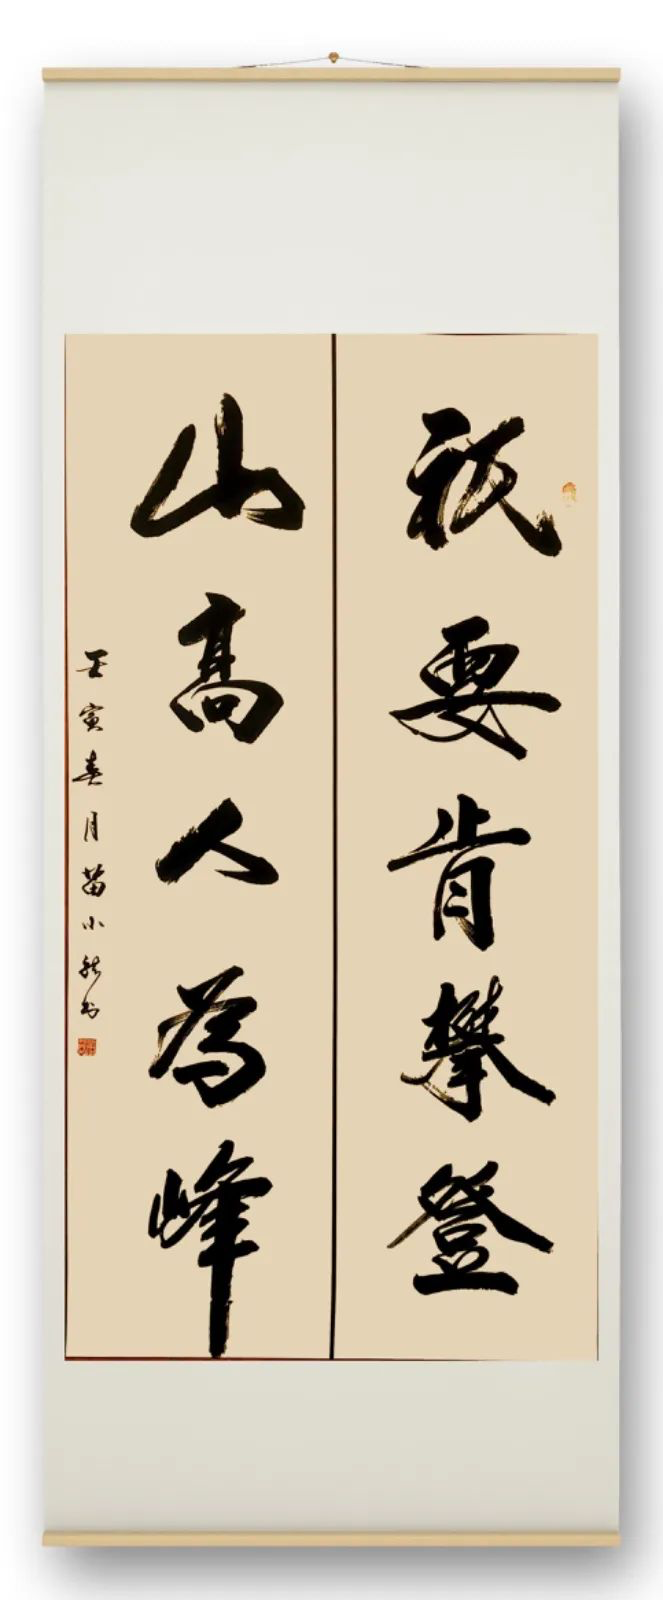 祇要肯攀登
山高人為峰
壬寅春月苗小龍書